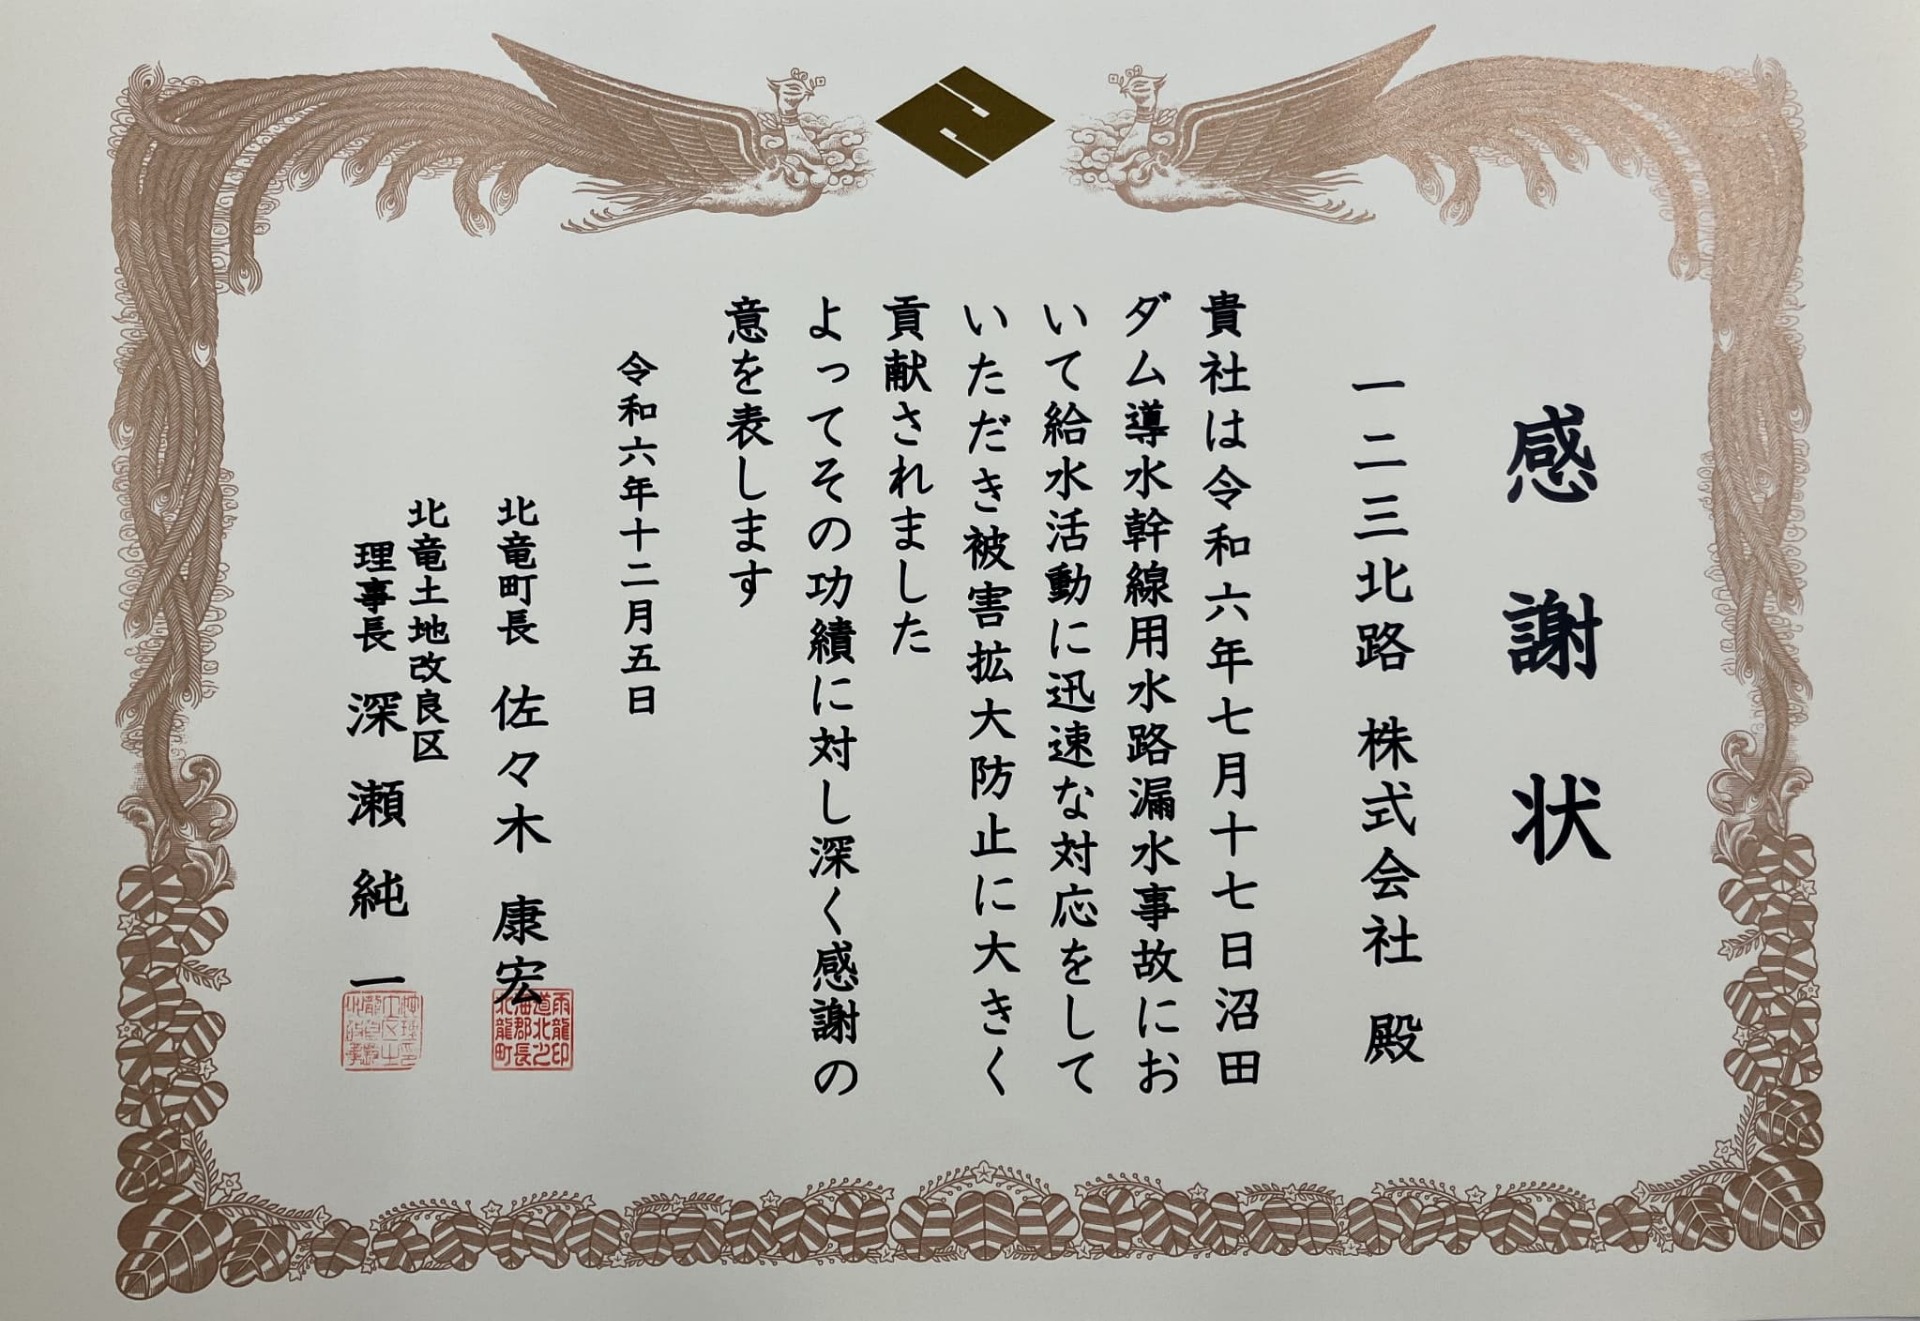 感謝状
一二三北路 株式会社 殿
貴社は令和六年七月十七日沼田
ダム導水幹線用水路漏水事故にお
いて給水活動に迅速な対応をして
いただき被害拡大防止に大きく
貢献されました
よってその功績に対し深く感謝の
意を表します
令和六年十二月五日
北竜町長 佐々木 康宏
北竜土地改良区
理事長 深瀬 純一